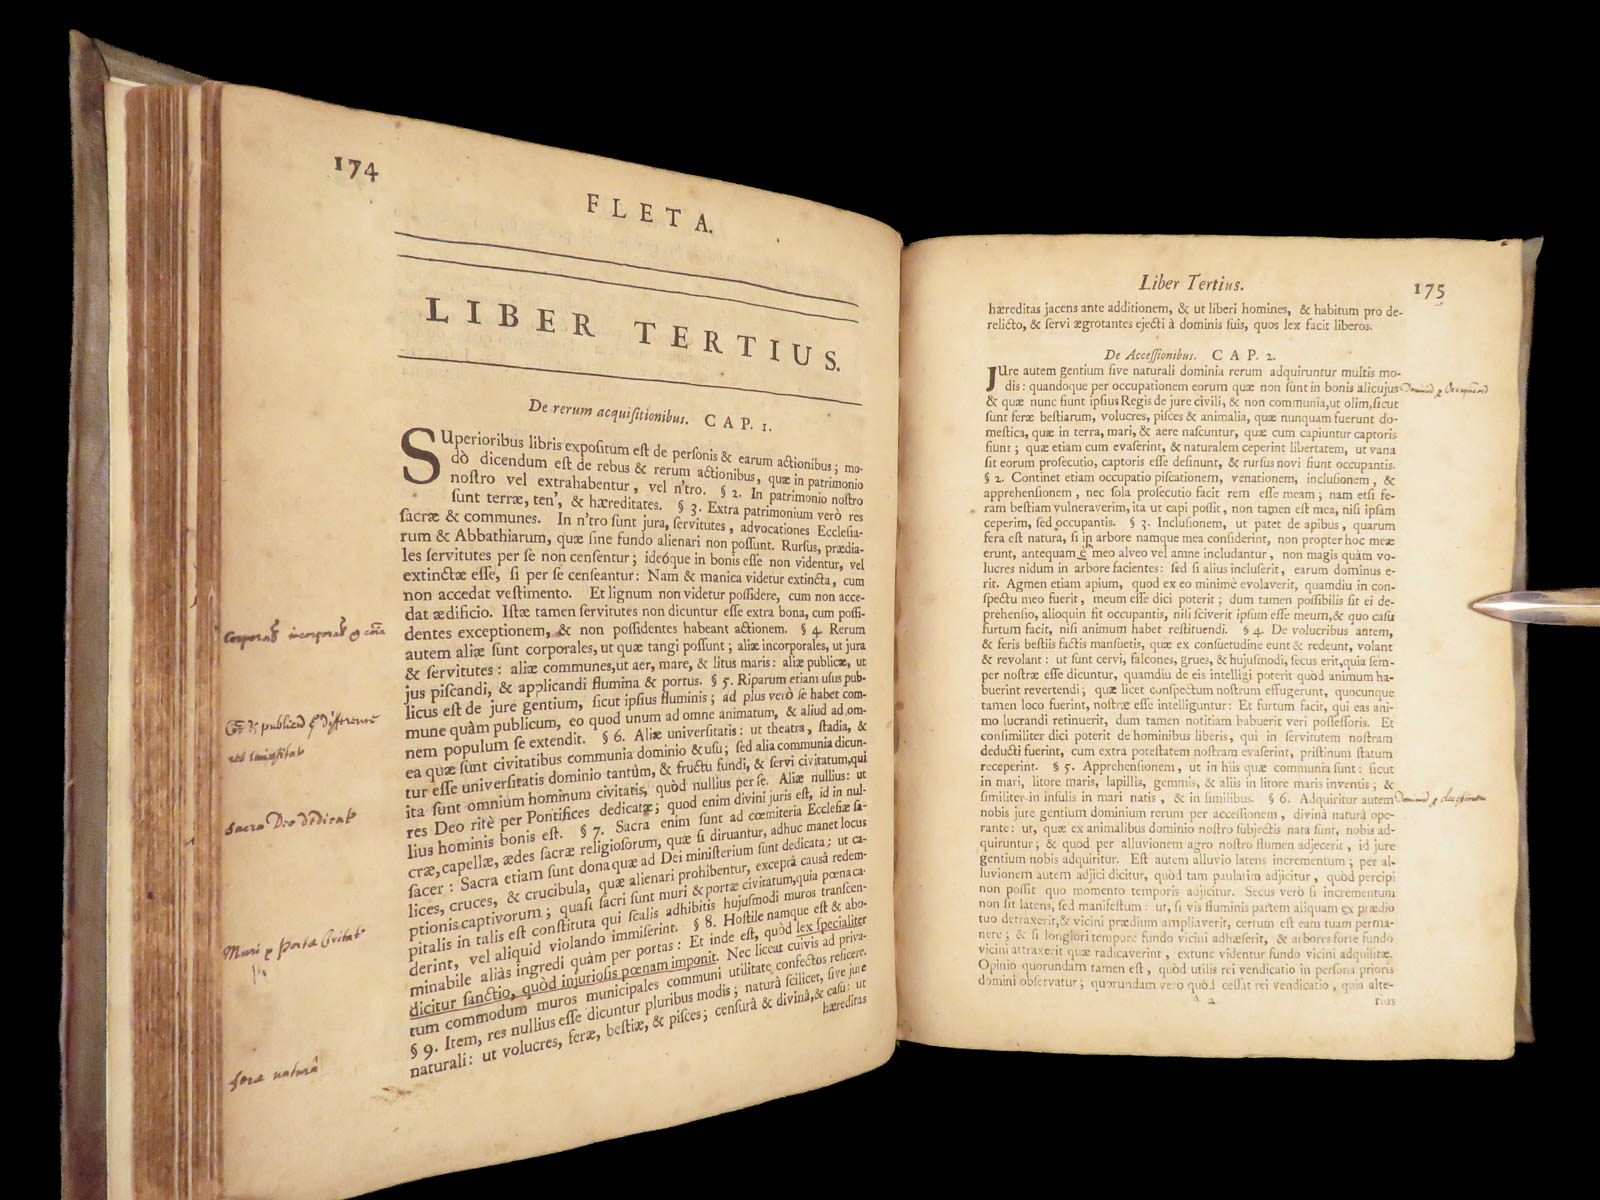 174
FLETA.
LIBER TERTIUS.
De rerum acquisitionibus. CAP. 1.
SUperioribus libris expositum est de personis & earum actionibus; mo-
dò dicendum est de rebus & rerum actionibus, quæ in patrimonio
nostro vel extrahabentur, vel n'tro. § 2. In patrimonio nostro
sunt terræ, ten', & hæreditates. § 3. Extra patrimonium verò res
sacræ & communes. In n'tro sunt jura, servitutes, advocationes Ecclesia-
rum & Abbathiarum, quæ sine fundo alienari non possunt. Rursus, prædia-
les servitutes per se non censentur; ideóque in bonis esse non videntur, vel
extinctæ esse, si per se censeantur: Nam & manica videtur extincta, cum
non accedat vestimento. Et lignum non videtur possidere, cum non acce-
dat ædificio. Istæ tamen servitutes non dicuntur esse extra bona, cum possi-
dentes exceptionem, & non possidentes habeant actionem. § 4. Rerum
autem aliæ sunt corporales, ut quæ tangi possunt; aliæ incorporales, ut jura
& servitutes: aliæ communes, ut aer, mare, & litus maris: aliæ publicæ, ut
jus piscandi, & applicandi flumina & portus. § 5. Riparum etiam usus pub-
licus est de jure gentium, sicut ipsius fluminis; ad plus verò se habet com-
mune quàm publicum, eo quod unum ad omne animatum, & aliud ad om-
nem populum se extendit. § 6. Aliæ universitatis: ut theatra, stadia, &
ea quæ sunt civitatibus communia dominio & usu; sed alia communia dicun-
tur esse universitatis dominio tantùm, & fructu fundi, & servi civitatum, qui
ita sunt omnium hominum civitatis, quòd nullius per se. Aliæ nullius: ut
res Deo ritè per Pontifices dedicatæ; quod enim divini juris est, id in nul-
lius hominis bonis est. § 7. Sacra enim sunt ad cœmiteria Ecclesiæ sa-
cræ, capellæ, ædes sacræ religiosorum, quæ si diruantur, adhuc manet locus
sacer: Sacra etiam sunt dona quæ ad Dei ministerium sunt dedicata; ut ca-
lices, cruces, & crucibula, quæ alienari prohibentur, exceptâ causâ redem-
ptionis captivorum; quasi sacri sunt muri & portæ civitatum, quia pœna ca-
pitalis in talis est constituta qui scalis adhibitis hujusmodi muros transcen-
derint, vel aliquid violando immiserint. § 8. Hostile namque est & abo-
minabile aliàs ingredi quàm per portas: Et inde est, quòd lex specialiter
dicitur sanctio, quòd injuriosis pœnam imponit. Nec liceat cuivis ad priva-
tum commodum muros municipales communi utilitate confectos reficere.
§ 9. Item, res nullius esse dicuntur pluribus modis; naturâ scilicet, sive jure
naturali: ut volucres, feræ, bestiæ, & pisces; censurâ & divinâ, & casu: ut
hæreditas
Sacra Deo dedicat
Muri & Porta Civitat
feræ naturâ
Liber Tertius.
175
hæreditas jacens ante additionem, & ut liberi homines, & habitum pro de-
relicto, & servi ægrotantes ejecti à dominis suis, quos lex facit liberos.
De Accessionibus. CAP. 2.
JUre autem gentium sive naturali dominia rerum adquiruntur multis mo-
dis: quandoque per occupationem eorum quæ non sunt in bonis alicujus
& quæ nunc fiunt ipsius Regis de jure civili, & non communia, ut olim, sicut
sunt feræ bestiarum, volucres, pisces & animalia, quæ nunquam fuerunt do-
mestica, quæ in terra, mari, & aere nascuntur, quæ cum capiuntur captoris
fiunt; quæ etiam cum evaserint, & naturalem ceperint libertatem, ut vana
sit eorum prosecutio, captoris esse desinunt, & rursus novi fiunt occupantis.
§ 2. Continet etiam occupatio piscationem, venationem, inclusionem, &
apprehensionem, nec sola prosecutio facit rem esse meam; nam etsi fe-
ram bestiam vulneraverim, ita ut capi possit, non tamen est mea, nisi ipsam
ceperim, sed occupantis. § 3. Inclusionem, ut patet de apibus, quarum
fera est natura, si in arbore namque mea considerint, non propter hoc meæ
erunt, antequam è meo alveo vel amne includantur, non magis quàm vo-
lucres nidum in arbore facientes: sed si alius incluserit, earum dominus e-
rit. Agmen etiam apium, quod ex eo minimè evolaverit, quamdiu in con-
spectu meo fuerit, meum esse dici poterit; dum tamen possibilis sit ei de-
prehensio, alioquin fit occupantis, nisi sciverit ipsum esse meum, & quo casu
furtum facit, nisi animum habet restituendi. § 4. De volucribus autem,
& feris bestiis factis mansuetis, quæ ex consuetudine eunt & redeunt, volant
& revolant: ut sunt cervi, falcones, grues, & hujusmodi, secus erit, quia sem-
per nostræ esse dicuntur, quamdiu de eis intelligi poterit quòd animum ha-
buerint revertendi; quæ licet conspectum nostrum effugerint, quocunque
tamen loco fuerint, nostræ esse intelliguntur: Et furtum facit, qui eas ani-
mo lucrandi retinuerit, dum tamen notitiam habuerit veri possessoris. Et
consimiliter dici poterit de hominibus liberis, qui in servitutem nostram
deducti fuerint, cum extra potestatem nostram evaserint, pristinum statum
receperint. § 5. Apprehensionem, ut in hiis quæ communia sunt: sicut
in mari, litore maris, lapillis, gemmis, & aliis in litore maris inventis; &
similiter in insulis in mari natis, & in similibus. § 6. Adquiritur autem
nobis jure gentium dominium rerum per accessionem, divinâ naturâ ope-
rante: ut, quæ ex animalibus dominio nostro subjectis nata sunt, nobis ad-
quiruntur; & quod per alluvionem agro nostro flumen adjecerit, id jure
gentium nobis adquiritur. Est autem alluvio latens incrementum; per al-
luvionem autem adjici dicitur, quòd tam paulatim adjicitur, quòd percipi
non possit quo momento temporis adjicitur. Secus verò si incrementum
non sit latens, sed manifestum: ut, si vis fluminis partem aliquam ex prædio
tuo detraxerit, & vicini prædium ampliaverit, certum est eam tuam perma-
nere; & si longiori tempore fundo vicini adhæserit, & arbores forte fundo
vicini attraxerit quæ radicaverint, extunc videntur fundo vicini adquisitæ.
Opinio quorundam tamen est, quòd utilis rei vendicatio in persona prioris
domini observatur; quorundam vero quòd cessat rei vendicatio, quia alte-
A a
rius